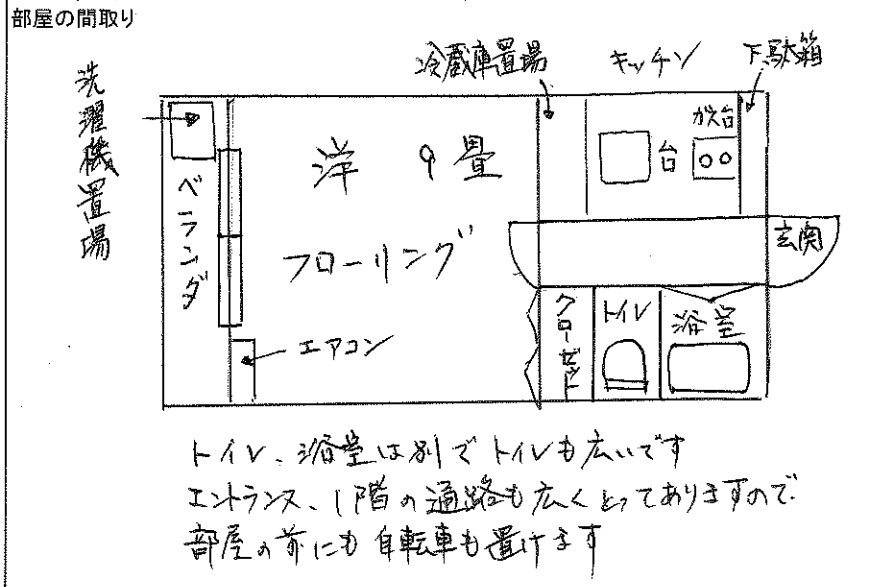 部屋の間取り
冷蔵庫置場
キッチン
下駄箱
洗濯機置場
ガス台
台
洋 9畳
ベランダ
フローリング
玄関
エアコン
クローゼット
トイレ
浴室
トイレ、浴室は別でトイレも広いです
エントランス、1階の通路も広くとってありますので
部屋の前にも自転車も置けます